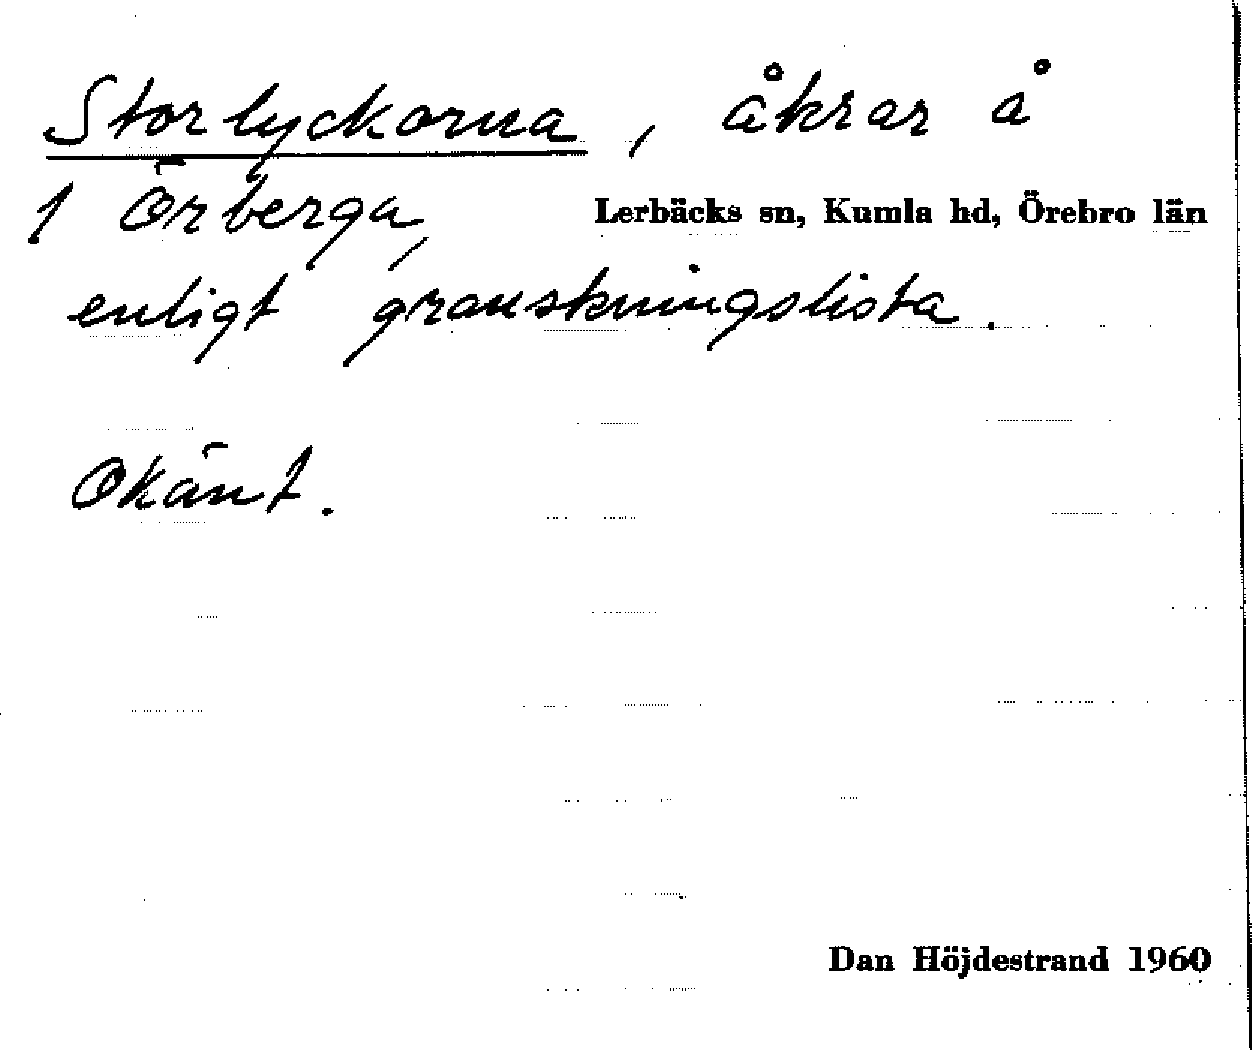 Storlyckorna, åkrar å
1 Örberga,
Lerbäcks sn, Kumla hd, Örebro län
enligt granskningslista.
Okänt.
Dan Höjdestrand 1960